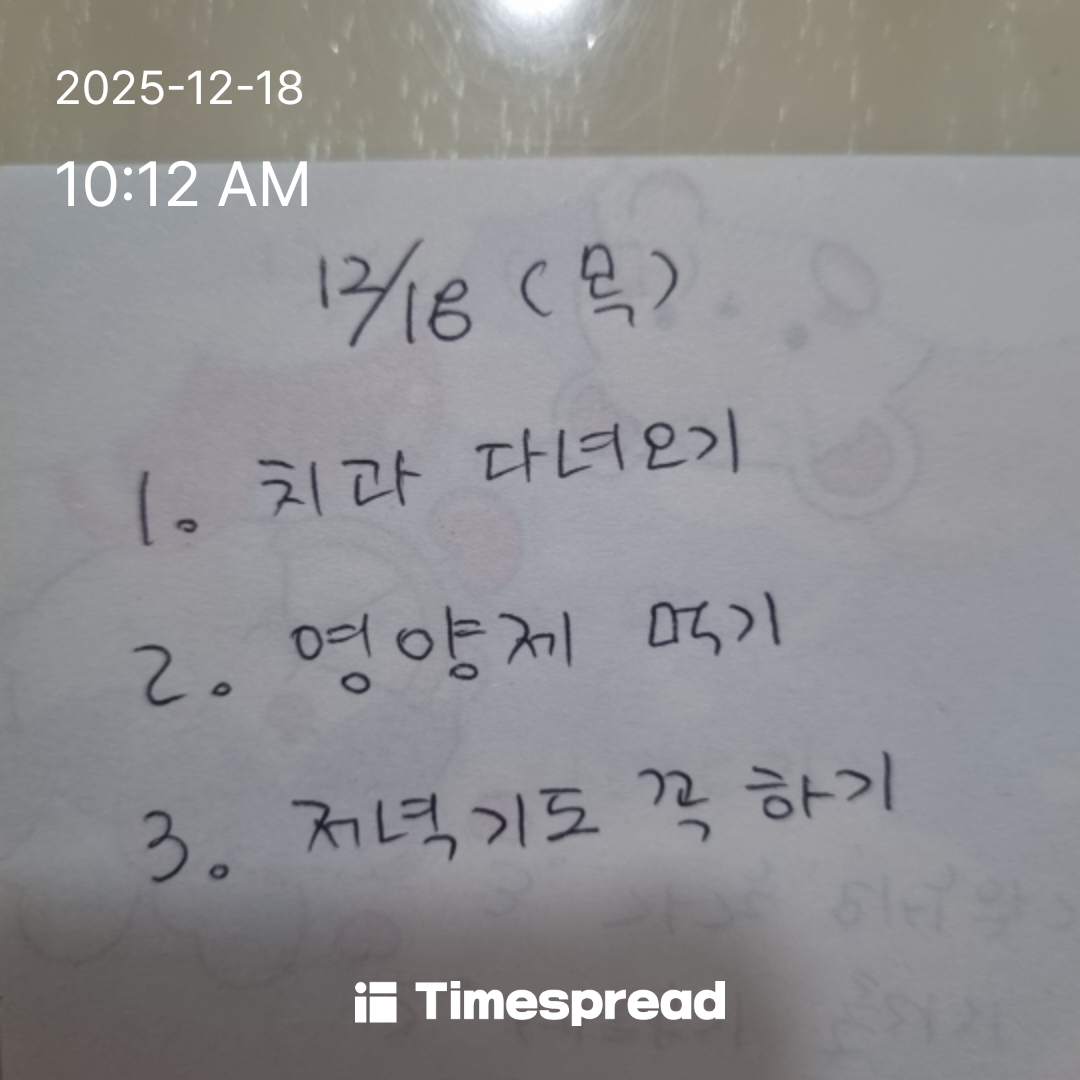 2025-12-18
10:12 AM
12/18 (목)
1. 치과 다녀오기
2. 영양제 먹기
3. 저녁기도 꼭 하기
Timespread